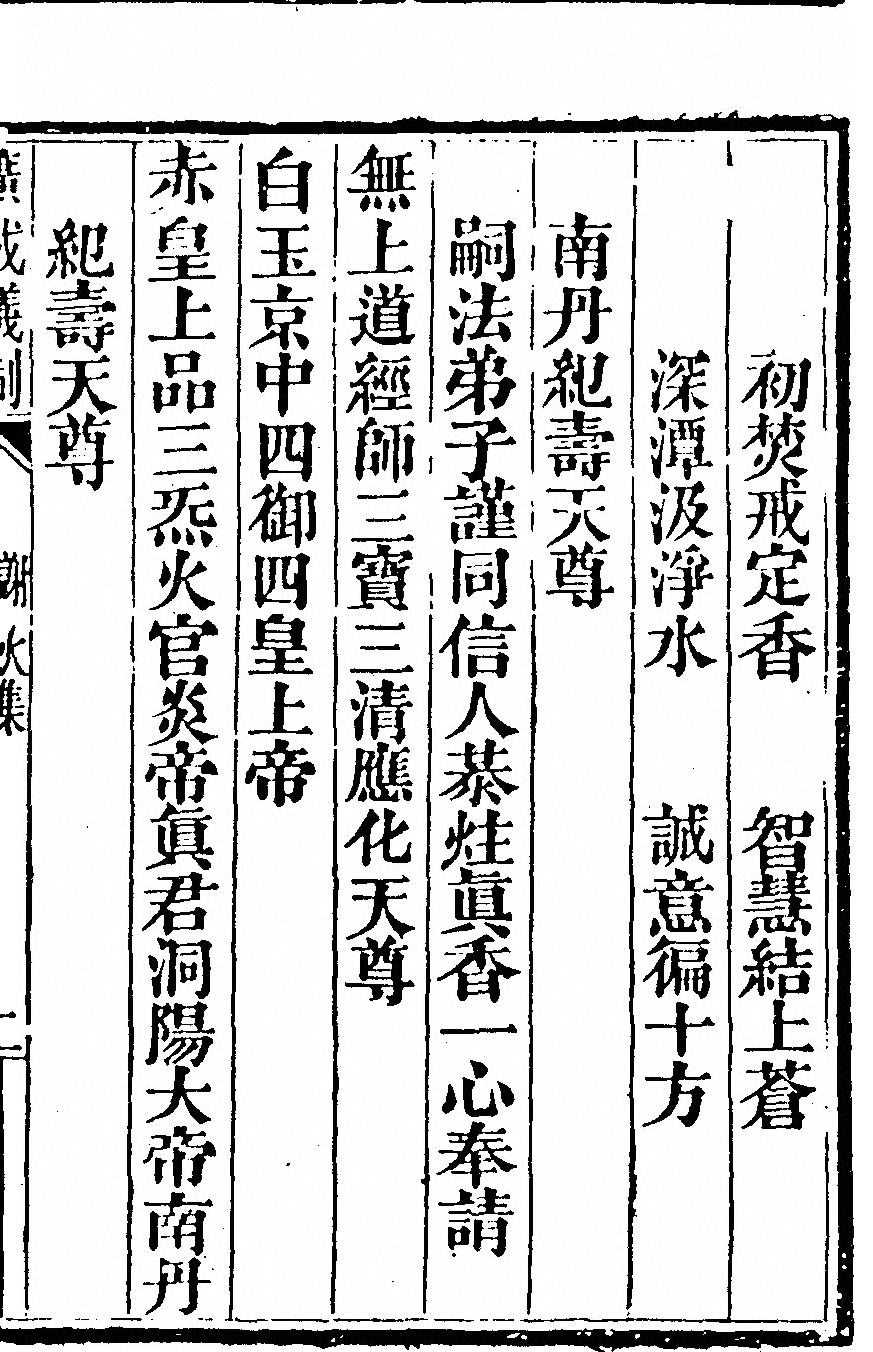 初焚戒定香　智慧結上蒼
深潭汲淨水　誠意徧十方
南丹紀壽天尊
嗣法弟子謹同信人恭炷眞香一心奉請
無上道經師三寶三清應化天尊
白玉京中四御四皇上帝
赤皇上品三炁火官炎帝眞君洞陽大帝南丹
紀壽天尊
廣成儀制　謝火集　二